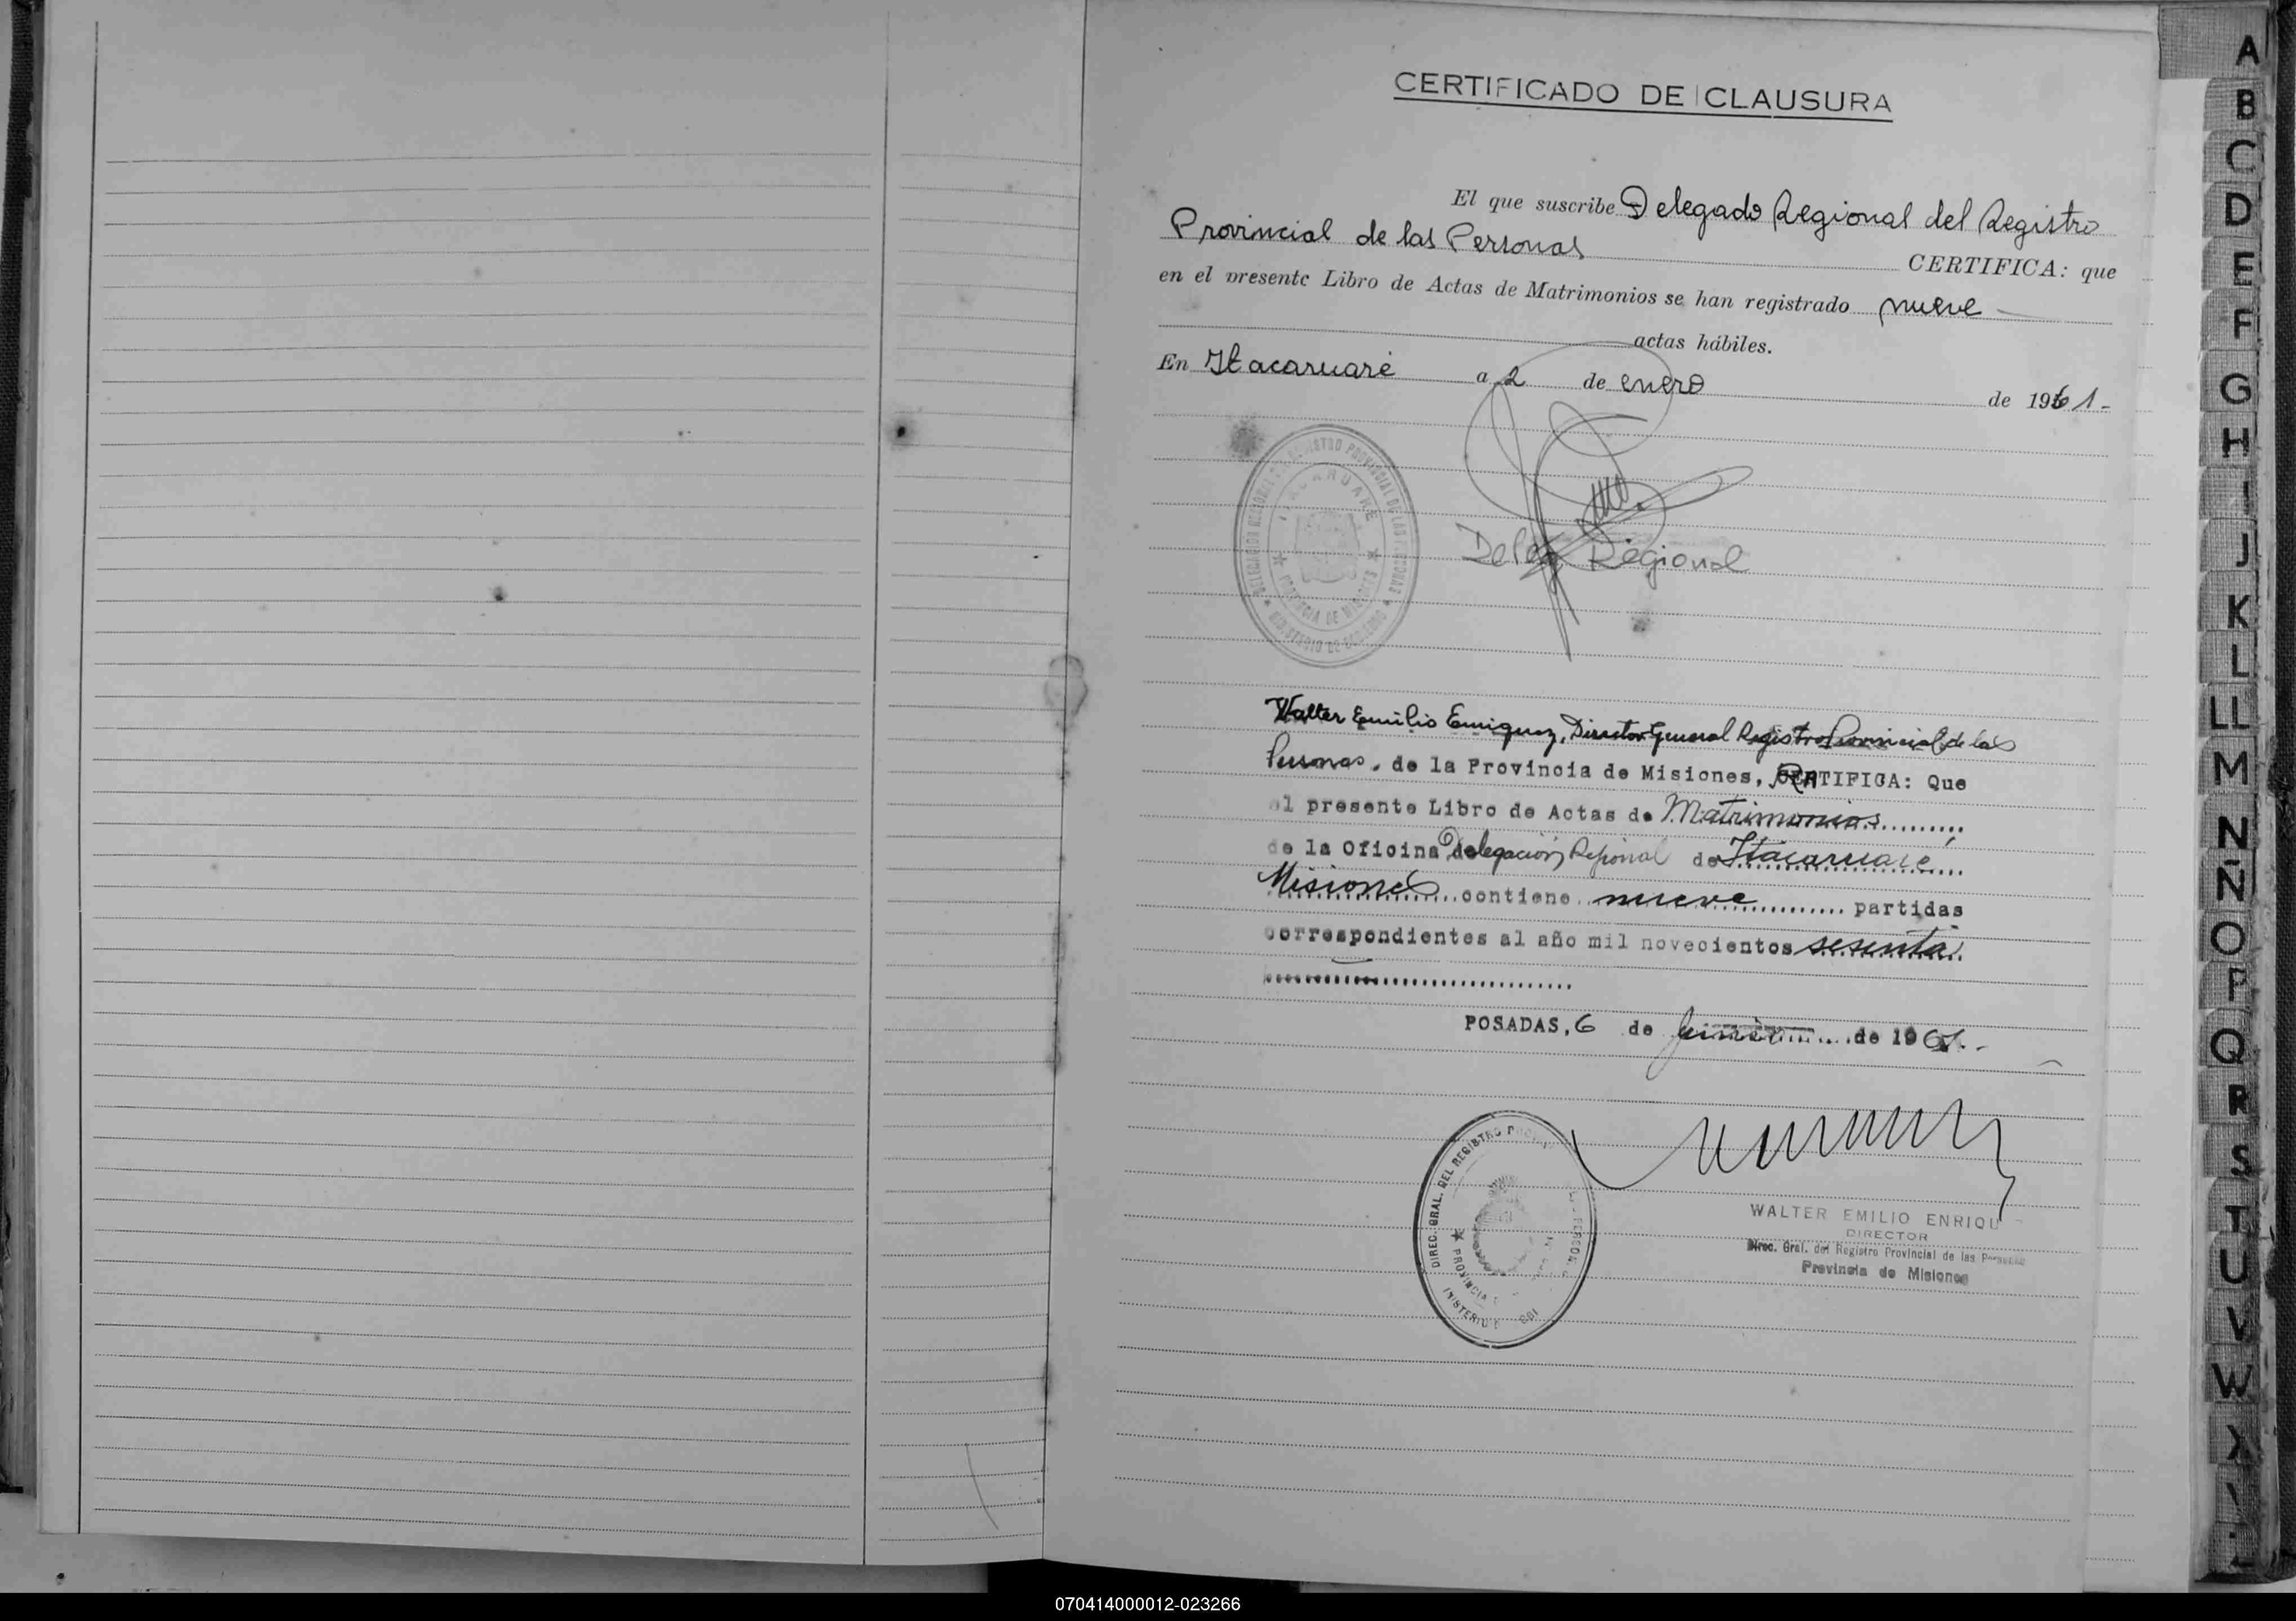 CERTIFICADO DE CLAUSURA
El que suscribe Delegado Regional del Registro
Provincial de las Personas CERTIFICA: que
en el presente Libro de Actas de Matrimonios se han registrado nueve
actas hábiles.
En Itacaruaré a 2 de enero de 1961.-
DELEGACION REGIONAL REGISTRO PROVINCIAL DE LAS PERSONAS
ITACARUARE
PROVINCIA DE MISIONES
MINISTERIO DE GOBIERNO
Deleg Regional
Walter Emilio Enriquez, Director General Registro Provincial de las
Personas, de la Provincia de Misiones, CERTIFICA: Que
el presente Libro de Actas de Matrimonios
de la Oficina Delegación Regional de Itacaruaré,
Misiones contiene nueve partidas
correspondientes al año mil novecientos sesenta
POSADAS, 6 de de 1961.-
DIREC. GRAL. DEL REGISTRO
PROVINCIA
WALTER EMILIO ENRIQU
DIRECTOR
Direc. Gral. del Registro Provincial de las Personas
Provincia de Misiones
A
B
C
D
E
F
G
H
I
J
K
L
LL
M
N
Ñ
O
P
Q
R
S
T
U
V
W
X
070414000012-023266